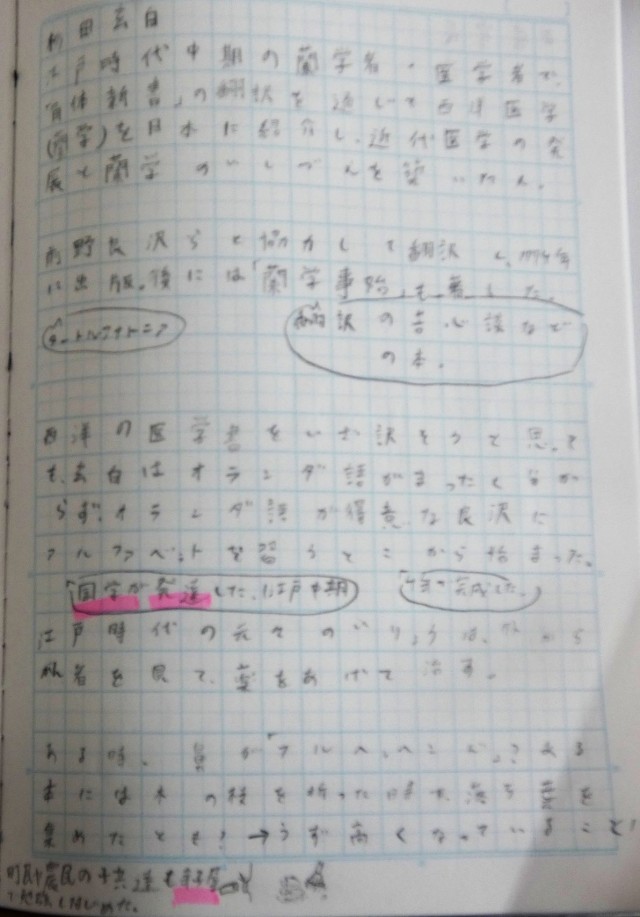 杉田玄白
江戸時代中期の蘭学者・医学者で、
「解体新書」の翻訳を通して西洋医学
(蘭学)を日本に紹介し、近代医学の発
展と蘭学のいしずえを築いた人。
前野良沢らと協力して翻訳し、1774年
に出版。後には「蘭学事始」も著した。
ターヘルアナトミア
翻訳の苦心談など
の本。
西洋の医学書をいざ訳そうと思って
も、玄白はオランダ語がまったく分か
らず、オランダ語が得意な良沢に
アルファベットを習うとこから始まった。
「国学が発達した、江戸中期
江戸時代の元々の
患者を見て、薬をあげて治す。
ある時、鼻がフルヘッヘンド?ある
本には木の枝を折った時や、落ち葉を
集めたとき! →うず高くなっていること!
町民や農民の子供達も寺子屋